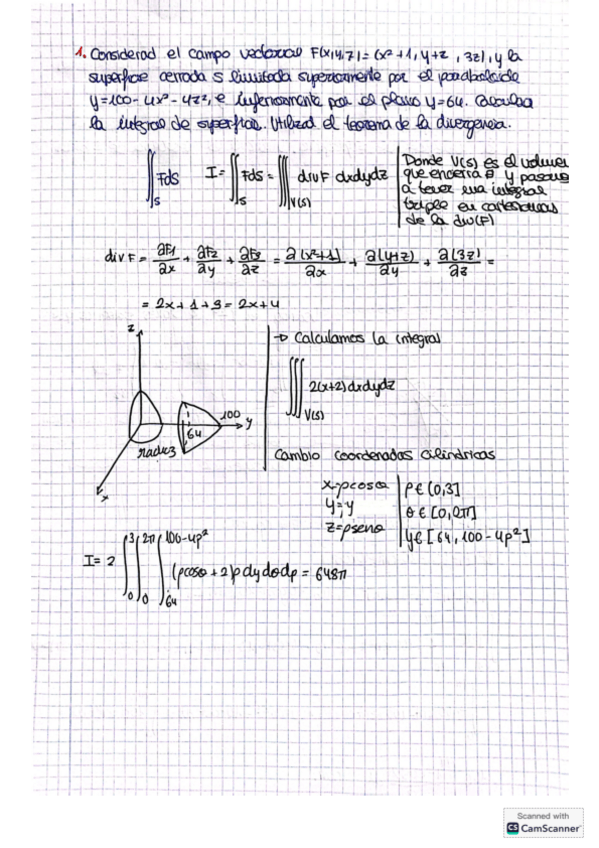 1. Considerad el campo vectorial F(x,y,z)=(x²+1, y+z, 3z), y la
superficie cerrada S limitada superiormente por el paraboloide
y=100-4x²-4z², e inferiormente por el plano y=64. Calcula
la integral de superficie. Utilizad el teorema de la divergencia.
∬_S Fds I=∬_S Fds=∭_V(S) divF dxdydz
Donde V(S) es el volumen
que encierra y pasamos
a tener una integral
triple en cartesianas
de la div(F)
divF= ∂F1/∂x + ∂F2/∂y + ∂F3/∂z = ∂(x²+1)/∂x + ∂(y+z)/∂y + ∂(3z)/∂z =
= 2x+1+3=2x+4
z
y
x
100
64
radio 3
→ Calculamos la integral
∭_V(S) 2(x+2)dxdydz
Cambio coordenadas cilíndricas
x=ρcosθ ρ∈(0,3]
y=y θ∈[0,2π]
z=ρsenθ y∈[64,100-4ρ²]
I=2 ∫_0^3 ∫_0^2π ∫_64^100-4ρ² (ρcosθ+2)ρdydθdρ=648π
Scanned with
CS CamScanner